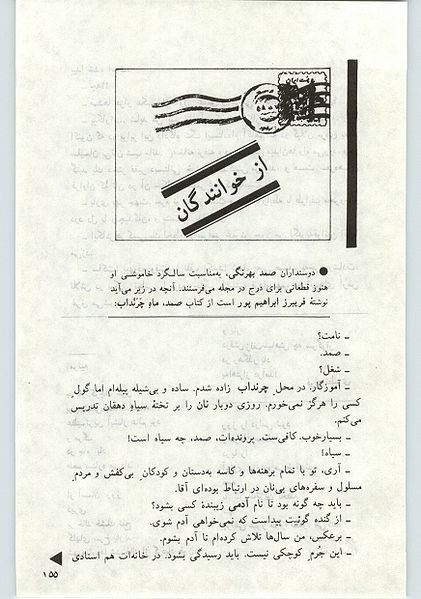 از خوانندگان
● دوستداران صمد بهرنگی، به‌مناسبت سالگرد خاموشی او
هنوز قطعاتی برای درج در مجله می‌فرستند. آنچه در زیر می‌آید
نوشتهٔ فریبرز ابراهیم پور است از کتاب صمد، ماهِ چَرَنداب:
ـ نامت؟
ـ صمد.
ـ شغل؟
ـ آموزگار. در محل چرنداب زاده شدم. ساده و بی‌شیله پیله‌ام اما گول
کسی را هرگز نمی‌خورم. روزی دوبار نان را بر تختهٔ سیاهِ دهقان تدریس
می‌کنم.
ـ بسیارخوب. کافی‌ست. پرونده‌ات، صمد، چه سیاه است!
ـ سیاه!
ـ آری، تو با تمام برهنه‌ها و کاسه به‌دستان و کودکانِ بی‌کفش و مردمِ
مسلول و سفره‌های بی‌نان در ارتباط بوده‌ای آقا.
ـ باید چه گونه بود تا نام آدمی زیبندهٔ کسی بشود؟
ـ از گنده گوئیت پیداست که نمی‌خواهی آدم شوی.
ـ برعکس، من سال‌ها تلاش کرده‌ام تا آدم بشوم.
ـ این جُرم کوچکی نیست. باید رسیدگی بشود. در خانه‌ات هم اسنادی
۱۵۵